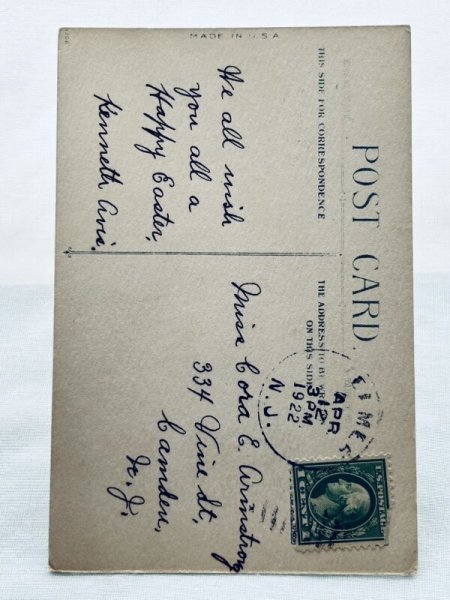 MADE IN U.S.A
POST CARD
THIS SIDE FOR CORRESPONDENCE
THE ADDRESS TO BE
ON THIS SIDE
We all wish
you all a
Happy Easter,
Kenneth Avis.
ELMER
APR
12
3 PM
1922
N.J.
U.S. POSTAGE
1 CENT 1
Miss Cora E. Armstrong
334 Vine St,
Camden,
N. J.